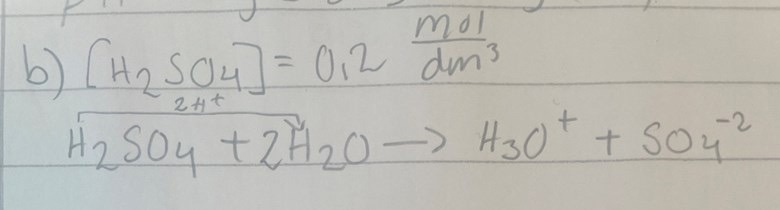 b) [H2SO4] = 0,2 mol/dm³
2H+
H2SO4 + 2H2O → H3O+ + SO4-2